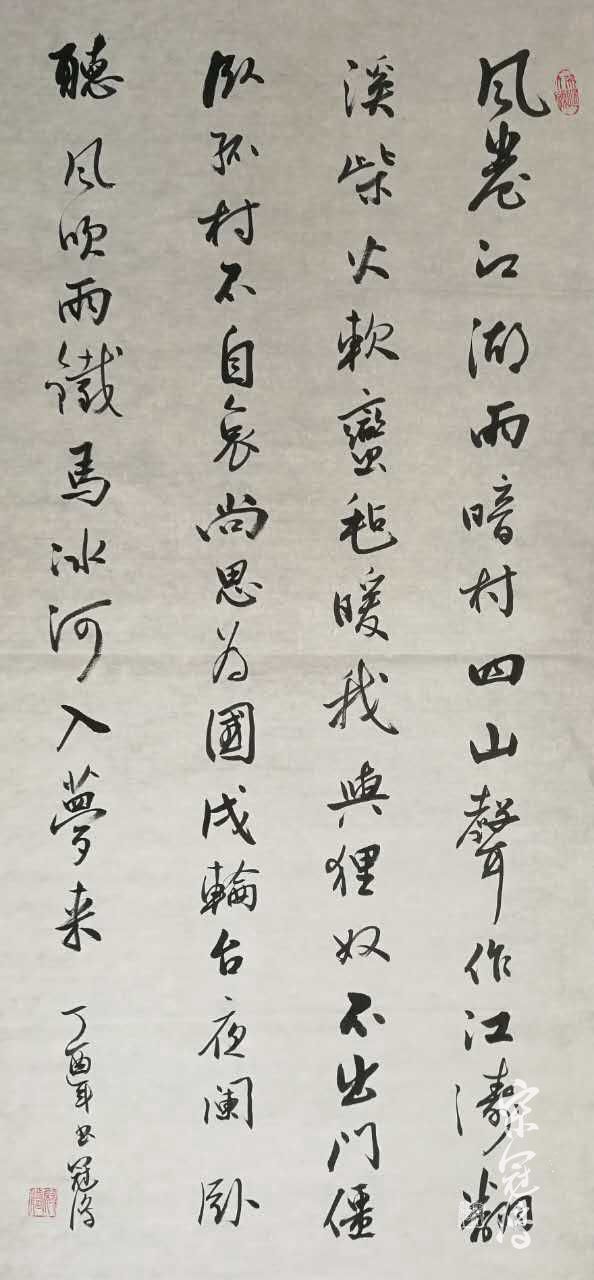 风卷江湖雨暗村四山聲作江濤翻
溪柴火軟蠻毡暖我與狸奴不出门僵
卧孤村不自哀尚思为國戍輪台夜阑卧
聽风吹雨鐵馬冰河入夢来
丁酉年书冠